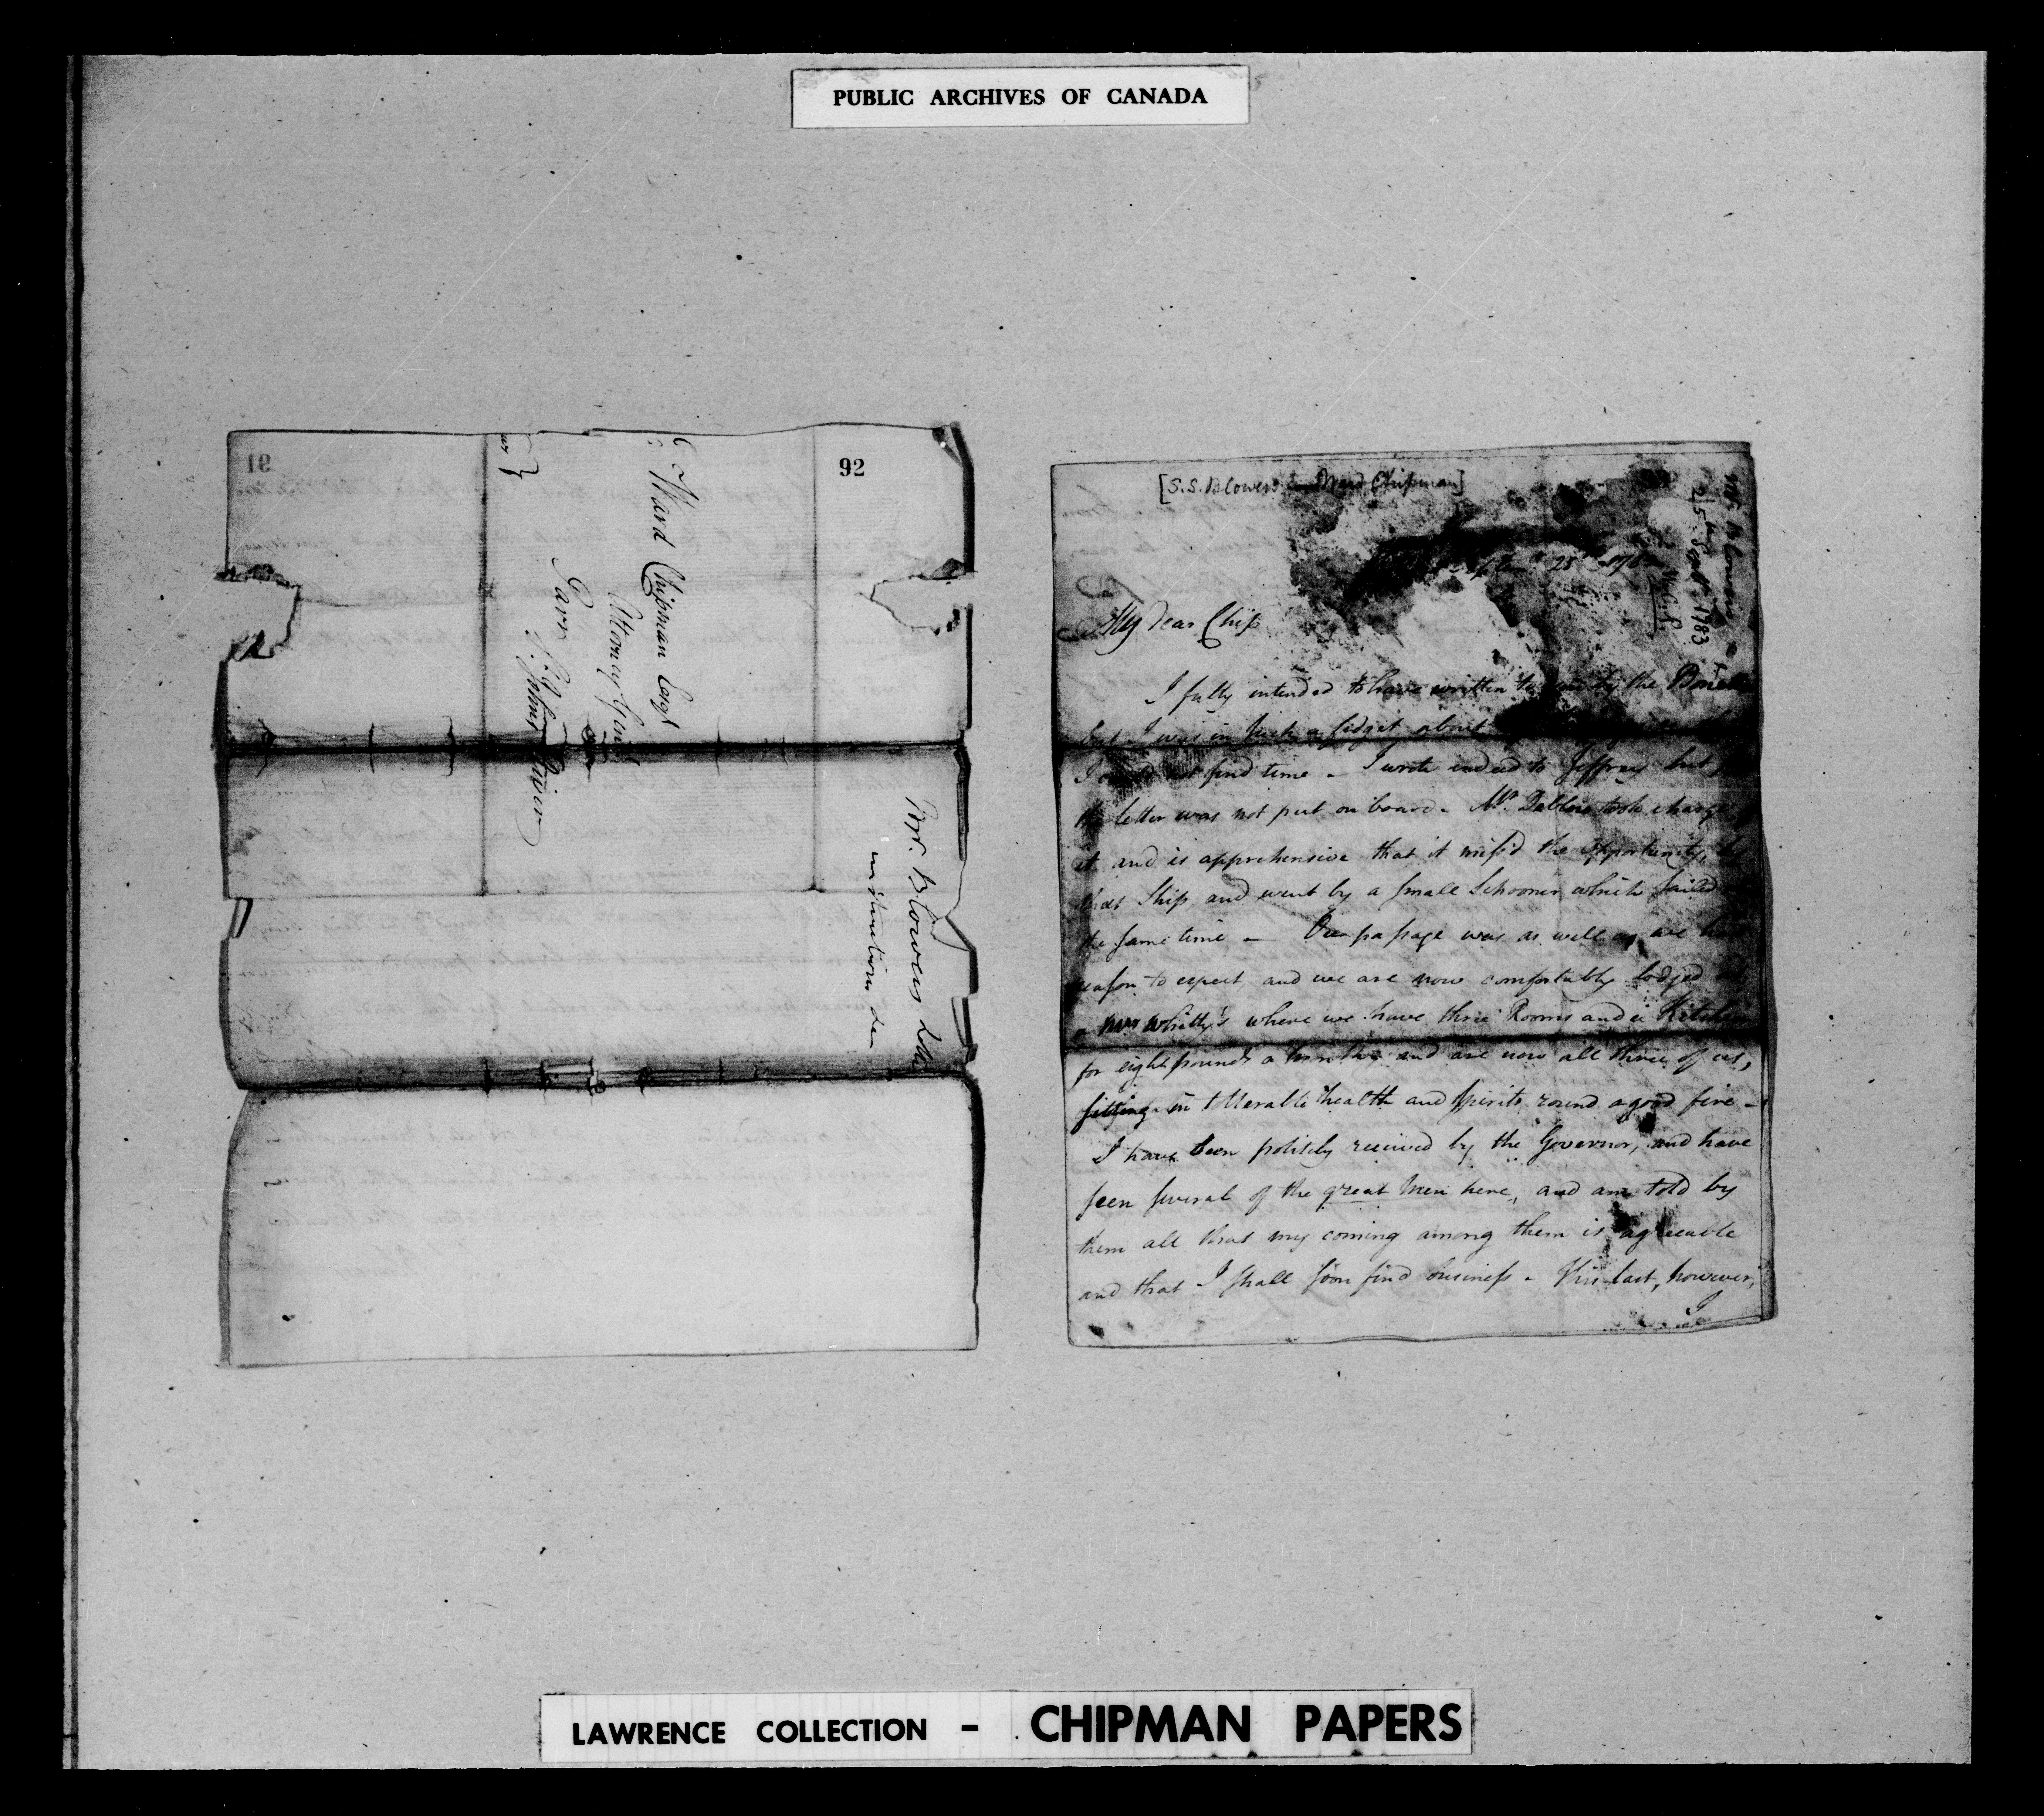 PUBLIC ARCHIVES OF CANADA
91
92
Ward Chipman Esqr
Attorney Genl
Parr
St. Johns River
Mr. Blowers
[S.S. Blowers to Ward Chipman]
Mr. Blowers
25 Sept. 1783
My dear Chip
I fully intended to have written to you by the
but I was in such a fidget about
I could not find time - I wrote indeed to Jeffrey but
the letter was not put on board - Mr. took charge
it and is apprehensive that it miss'd the opportunity, by
that Ship and went by a small Schooner which sailed
the same time - Our passage was as well as we had
reason to expect and we are now comfortably lodged at
a Mrs Whitty's where we have three Rooms and a Kitchen
for eight pounds a month and are now all three of us,
sitting in tollerable health and spirits round a good fire -
I have been politely received by the Governor, and have
seen several of the great Men here, and am told by
them all that my coming among them is agreeable
and that I shall soon find business - This last, however,
I
LAWRENCE COLLECTION - CHIPMAN PAPERS